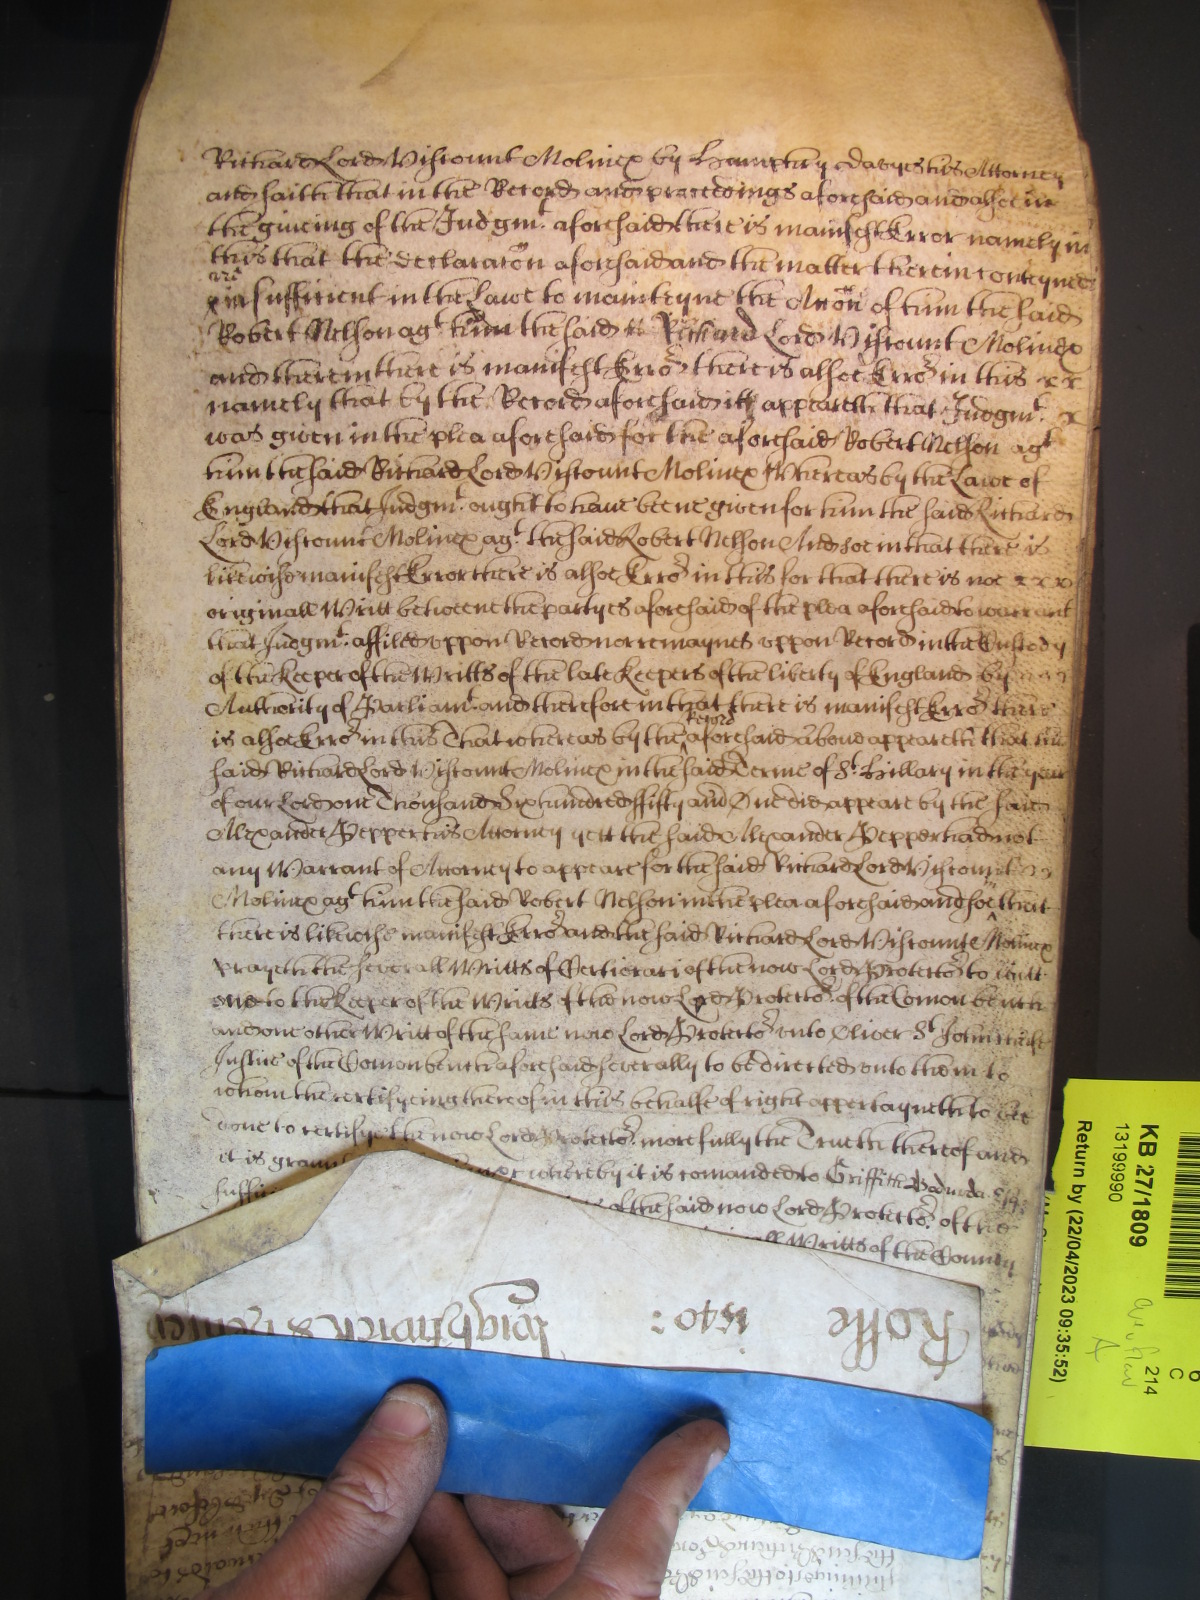 Richard Lord Viscount Molinex by Humphry Davyes his Attorney
and saith that in the Record and proceedings aforesaid and alsoe in
the giveing of the Judgmt. aforesaid there is manifest Error namely in
this that the declaracon aforesaid and the matter therein conteyned
are insufficient in the Lawe to mainteyne the Accon of him the said
Robert Nelson agt him the said Richard Lord Viscount Molinex
and therein there is manifest Error there is alsoe Error in this x x
namely that by the Record aforesaid itt appeareth that Judgmt. x
was given in the plea aforesaid for the aforesaid Robert Nelson agt
him the said Richard Lord Viscount Molinex Whereas by the Lawe of
England that Judgmt. ought to have beene given for him the said Richard
Lord Viscount Molinex agt the said Robert Nelson And soe in that there is
likewise manifest Error there is alsoe Error in this for that there is noe x x x
originall Writt betweene the partyes aforesaid of the plea aforesaid to warrant
that Judgmt. affiled uppon Record nor remaynes uppon Record in the Custody
of the Keeper of the Writts of the late Keepers of the liberty of England by
Authority of Parliamt. and therefore in that there is manifest Error there
is alsoe Error in this That whereas by the Record aforesaid above appeareth that the
said Richard Lord Viscount Molinex in the said Terme of St. Hillary in the year
of our Lord one Thousand Six hundred fifty and One did appeare by the said
Alexander Pepper his Attorney yett the said Alexander Pepper had not
any Warrant of Attorney to appeare for the said Richard Lord Viscount
Molinex agt him the said Robert Nelson in the plea aforesaid and soe in that
there is likewise manifest Error and the said Richard Lord Viscount Molinex
prayeth the severall Writts of Certiorari of the now Lord Protector to
one to the Keeper of the Writts of the now Lord Protector. of the Comon bench
and one other Writt of the same now Lord Protector unto Oliver St. John cheife
Justice of the Comon bench aforesaid severally to be directed unto them to
whom the certifyeing thereof in this behalfe of right appertayneth to bee
done to certifye the now Lord Protector. more fully the Trueth thereof and
it is whereby it is comanded to Griffith
of the said now Lord Protector. of the
Writts of the County
Rolle 1540:
KB 27/1809
13199990
Return by (22/04/2023 09:35:52)
214
C
6
A